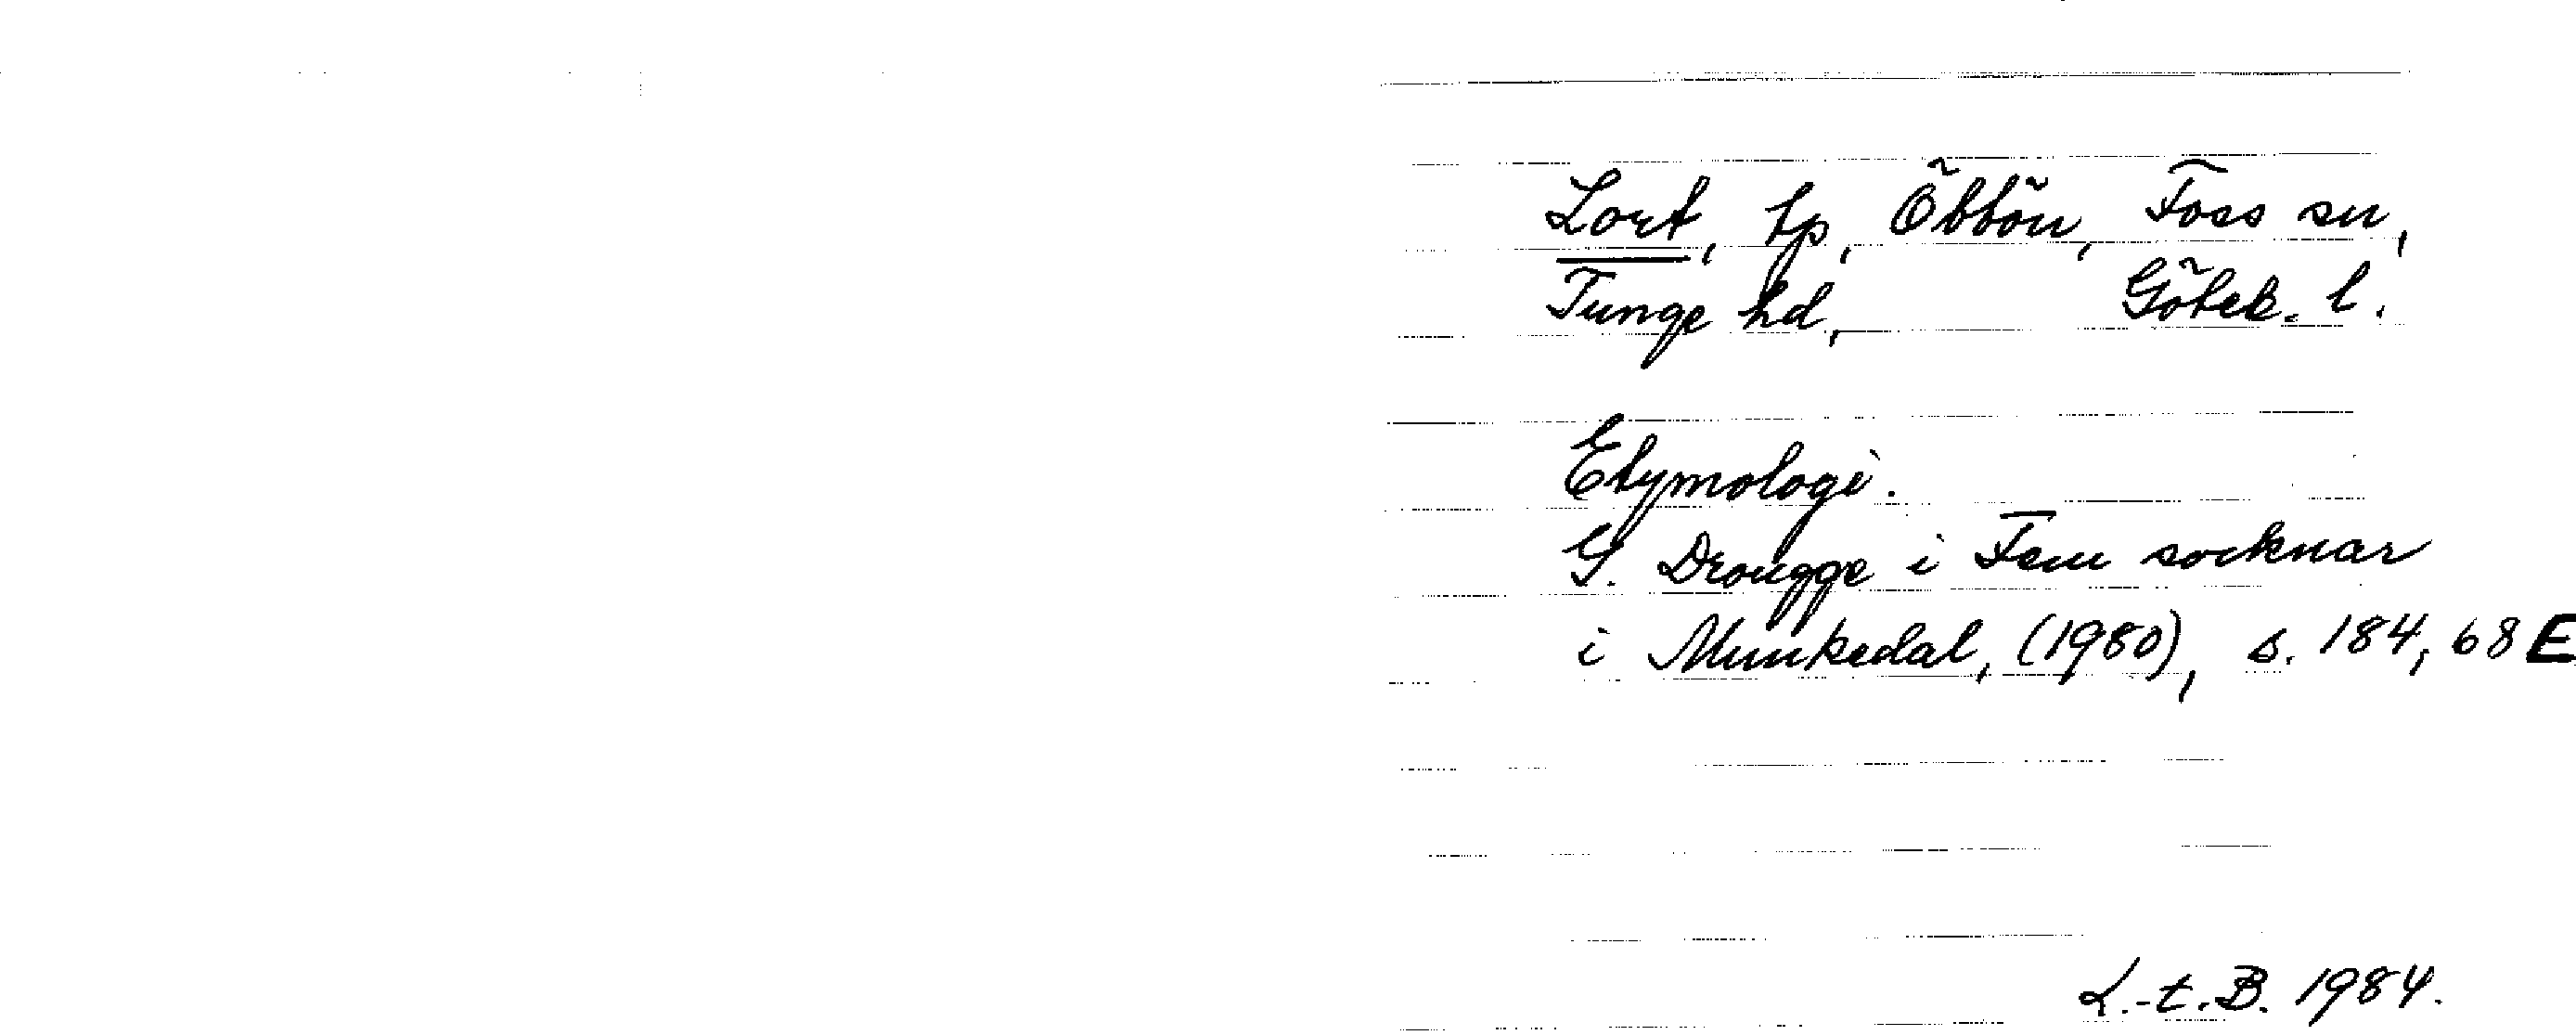 Lort, tp, Öbbön, Foss sn,
Tunge hd, Göteb. l.
Etymologi.
G. Drougge i Fem socknar
i Munkedal, (1980), s. 184, 68 E
L.-t.B. 1984.